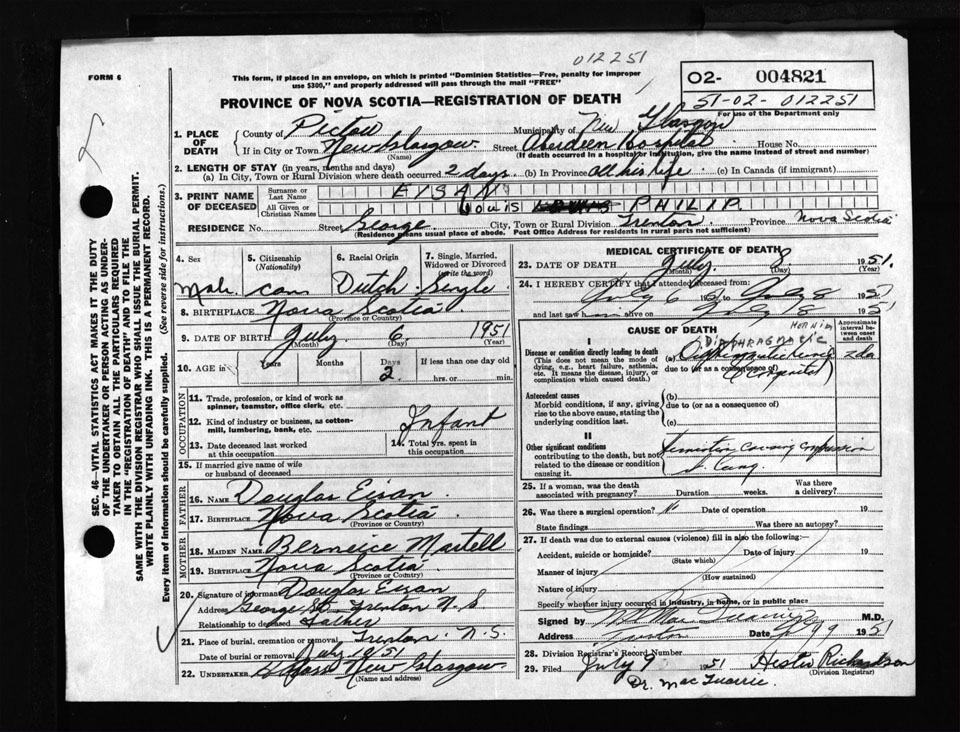 012251
FORM 6
This form, if placed in an envelope, on which is printed "Dominion Statistics—Free, penalty for improper
use $300," and properly addressed will pass through the mail "FREE"
02- 004821
51-02-012251
For use of the Department only
PROVINCE OF NOVA SCOTIA—REGISTRATION OF DEATH
1. PLACE OF DEATH
County of Pictou Municipality of New Glasgow
If in City or Town New Glasgow (Name) Street Aberdeen Hospital House No.
(If death occurred in a hospital or institution, give the name instead of street and number)
2. LENGTH OF STAY (in years, months and days)
(a) In City, Town or Rural Division where death occurred 2 days (b) In Province all his life (c) In Canada (if immigrant)
3. PRINT NAME OF DECEASED
Surname or Last Name EISAN
All Given or Christian Names Louis PHILIP.
RESIDENCE No. Street George City, Town or Rural Division Trenton Province Nova Scotia
(Residence means usual place of abode. Post Office Address for residents in rural parts not sufficient)
4. Sex Male
5. Citizenship (Nationality) can
6. Racial Origin Dutch
7. Single, Married, Widowed or Divorced (Write the word) Single
8. BIRTHPLACE Nova Scotia
(Province or Country)
9. DATE OF BIRTH July 6 1951
(Month) (Day) (Year)
10. AGE in Years Months Days 2 If less than one day old
hrs. or min.
OCCUPATION
11. Trade, profession, or kind of work as
spinner, teamster, office clerk, etc.
12. Kind of industry or business, as cotton-
mill, lumbering, bank, etc. Infant
13. Date deceased last worked
at this occupation
14. Total yrs. spent in
this occupation
15. If married give name of wife
or husband of deceased
FATHER
16. NAME Douglas Eisan
17. BIRTHPLACE Nova Scotia
(Province or Country)
MOTHER
18. MAIDEN NAME Berneice Martell
19. BIRTHPLACE Nova Scotia
(Province or Country)
20. Signature of informant Douglas Eisan
Address George St Trenton N.S
Relationship to deceased Father
21. Place of burial, cremation or removal Trenton N.S.
Date of burial or removal July 10 51
22. UNDERTAKER New Glasgow
(Name and address)
MEDICAL CERTIFICATE OF DEATH
23. DATE OF DEATH July 8 1951.
(Month) (Day) (Year)
24. I HEREBY CERTIFY that I attended deceased from:
July 6 1951 to July 8 1951
and last saw h alive on July 8 1951
CAUSE OF DEATH
Approximate interval between onset and death
I
Disease or condition directly leading to death
(This does not mean the mode of
dying, e.g., heart failure, asthenia,
etc. It means the disease, injury, or
complication which caused death.)
DIAPHRAGMATIC HERNIA
(a) Diaphragmatic Hernia 2 da
due to (or as a consequence of)
(Congenital)
Antecedent causes
Morbid conditions, if any, giving
rise to the above cause, stating the
underlying condition last.
(b)
due to (or as a consequence of)
(c)
II
Other significant conditions
contributing to the death, but not
related to the disease or condition
causing it.
causing compression
25. If a woman, was the death
associated with pregnancy? Duration weeks. Was there
a delivery?
26. Was there a surgical operation? N Date of operation 19
State findings Was there an autopsy?
27. If death was due to external causes (violence) fill in also the following:
Accident, suicide or homicide? Date of injury 19
(State which)
Manner of injury
(How sustained)
Nature of injury
Specify whether injury occurred in industry, in home, or in public place
Signed by M.D.
Address Trenton Date July 9 1951
28. Division Registrar's Record Number
29. Filed July 9 1951 Hester Richardson
(Division Registrar)
Dr. MacQuarrie.
SEC. 46—VITAL STATISTICS ACT MAKES IT THE DUTY
OF THE UNDERTAKER OR PERSON ACTING AS UNDER-
TAKER TO OBTAIN ALL THE PARTICULARS REQUIRED
IN THE "REGISTRATION OF DEATH" AND TO FILE THE
SAME WITH THE DIVISION REGISTRAR WHO SHALL ISSUE THE BURIAL PERMIT.
WRITE PLAINLY WITH UNFADING INK. THIS IS A PERMANENT RECORD.
Every item of information should be carefully supplied. (See reverse side for instructions.)